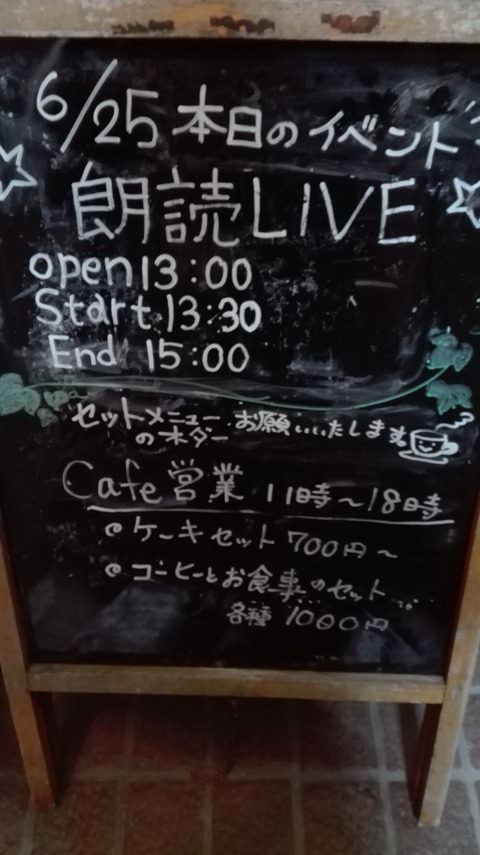 6/25 本日のイベント
朗読LIVE
open 13:00
Start 13:30
End 15:00
セットメニュー お願いいたします。
のオーダー
Cafe営業 11時〜18時
ケーキセット 700円〜
コーヒーとお食事のセット...
各種 1000円